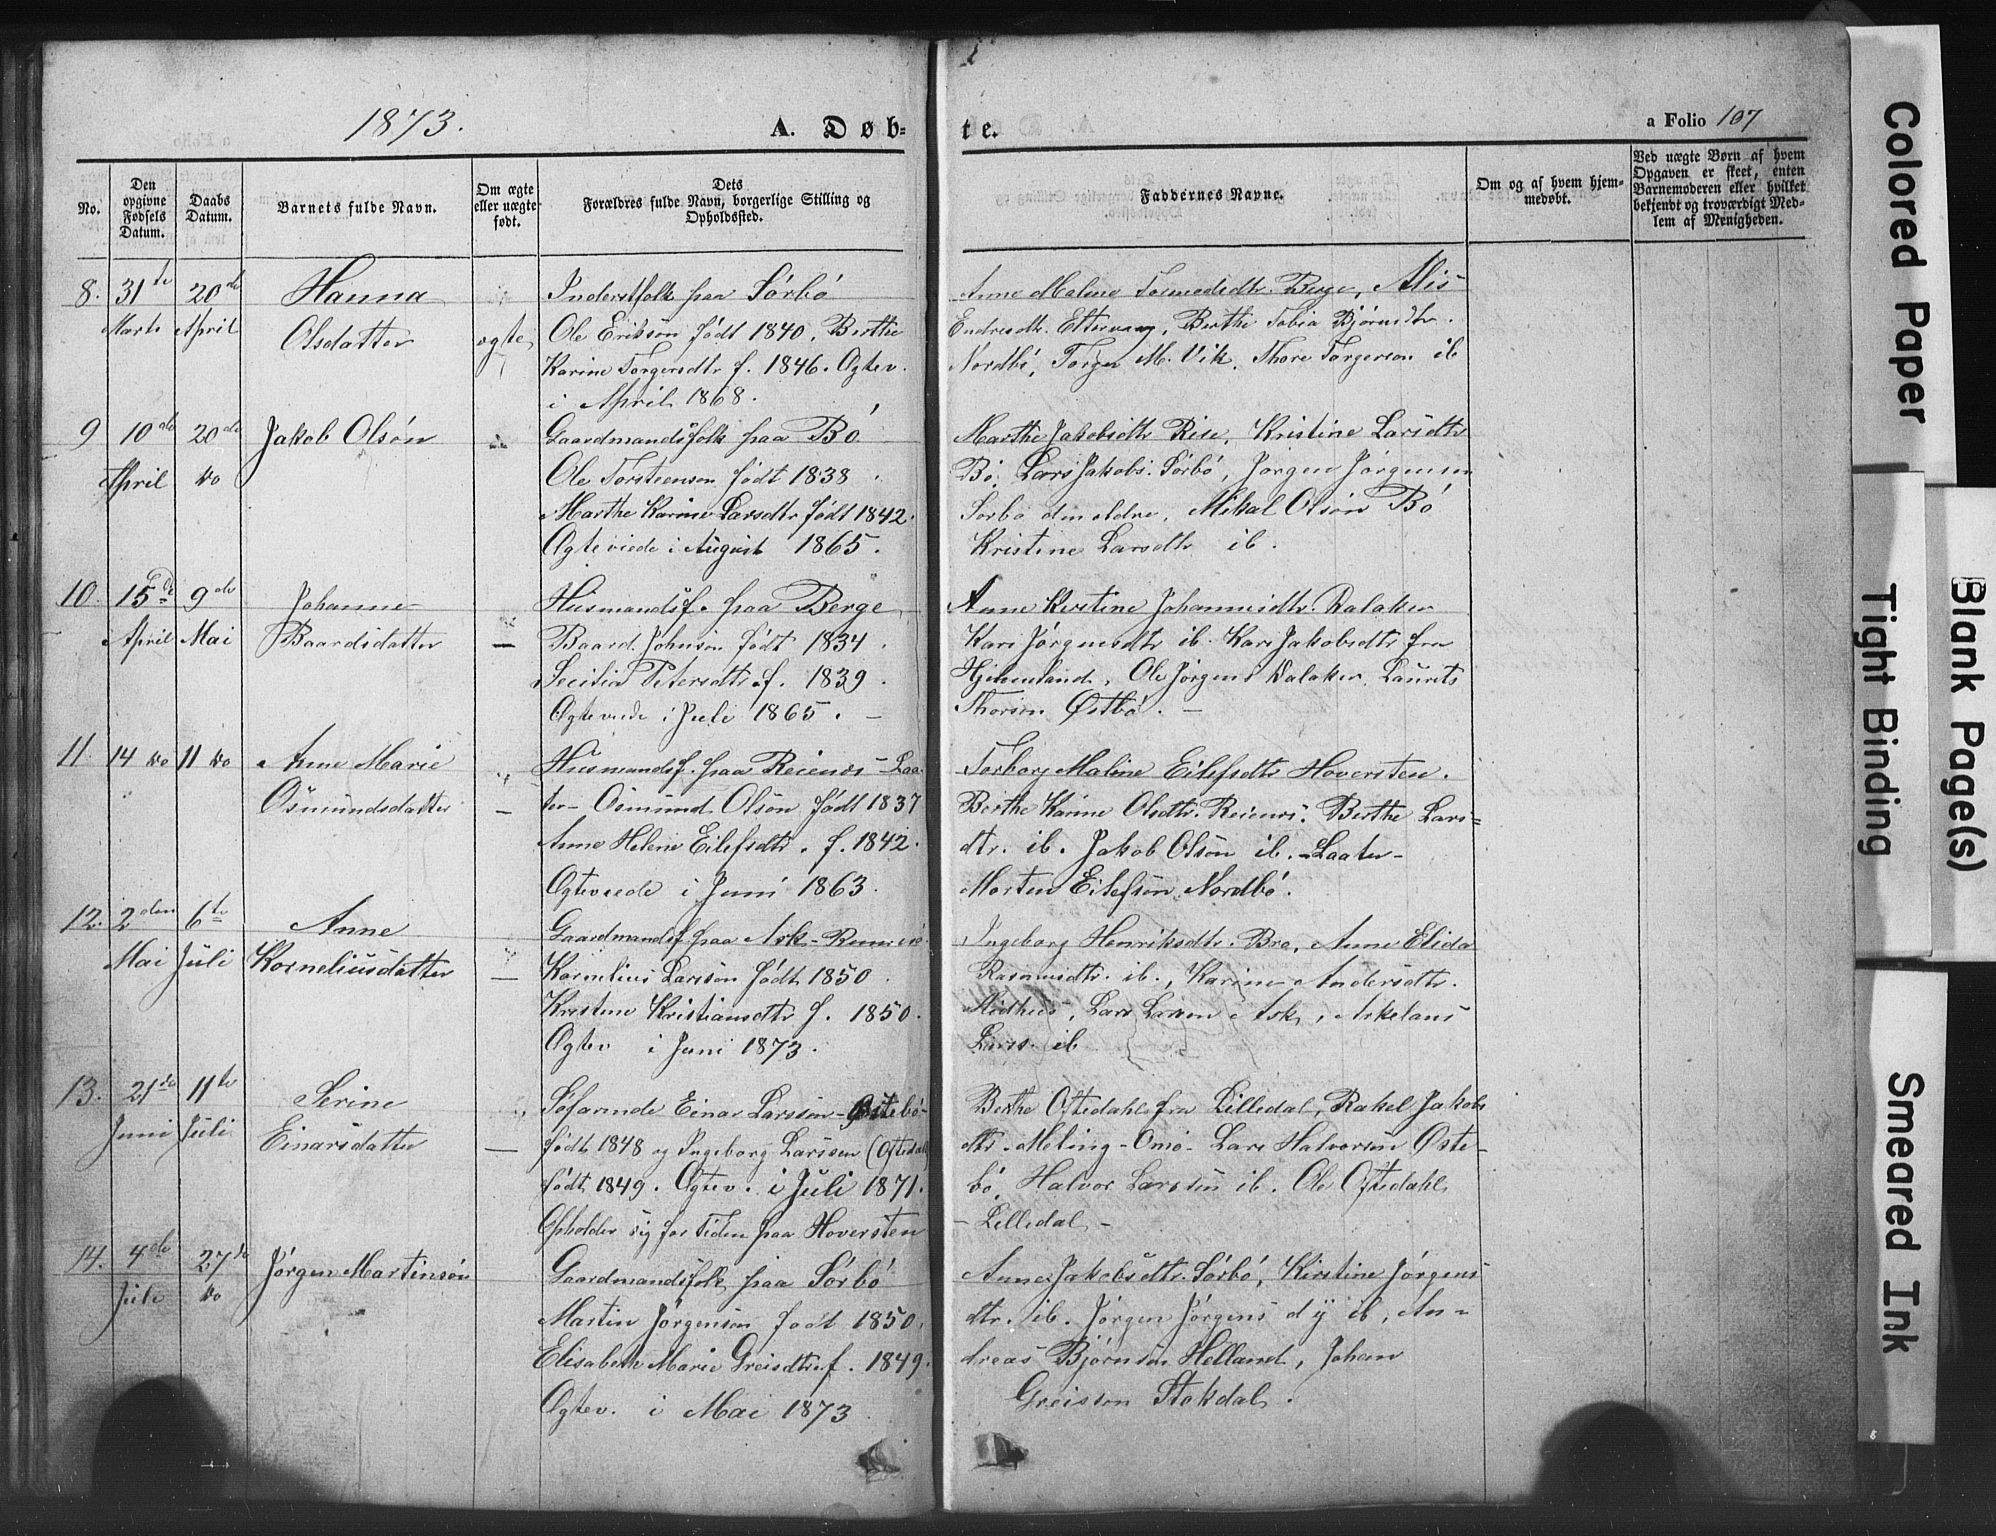 1873.
A. Døb-
te.
a Folio 107
No.
Den opgivne Fødsels Datum.
Daabs Datum.
Barnets fulde Navn.
Om ægte eller uægte født.
Dets
Forældres fulde Navn, borgerlige Stilling og Opholdssted.
Faddernes Navne.
Om og af hvem hjemmedøbt.
Ved uægte Børn af hvem
Opgaven er skeet, enten
Barnemoderen eller hvilket
bekjendt og troværdigt Med-
lem af Menigheden.
8. 31te Marts
20de April
Hanna
Olsdatter
ægte
Inderstfolk paa Sørbø
Ole Erikson født 1840, Berthe
Karine Torgersdtr f. 1846. Ægtev.
i April 1868.
Anne Malene Tormodsdtr. Berge, Alis
Endresdtr. , Berthe Tobia Bjørnsdtr.
Nordbø, Torger M. Vik, Thore Torgerson ib
9 10de April
20de do
Jakob Olsøn
Gaardmandsfolk paa Bø
Ole Torsteenson født 1838
Marthe Karine Larsdtr født 1842.
Ægteviede i August 1865.
Marthe Jakobsdtr Rise, Kristine Larsdtr
Bø, Lars Jakobs. Sørbø, Jørgen Jørgensen
Sørbø den Ældre, Mikal Olsøn Bø
Kristine Larsdtr ib.
10. 15de April
9de Mai
Johanne
Baardsdatter
—
Husmandsf. paa Berge
Baard Johnson født 1834
Secilia Petersdtr f. 1839.
Ægteviede i Juli 1865. —
Anne Kirstine Johannesdtr. Dalaker
Kari Jørgensdtr ib. Kari Jakobsdtr fra
Hjelmeland, Ole Jørgens Dalaker, Laurits
Thorsen Østbø. —
11. 14 do
11 do
Anne Marie
Osmundsdatter
—
Husmandsf. paa Reienes-Laa-
ter- Osmund Olsøn født 1837
Anne Helene Eilefsdtr. f. 1842.
Ægteviede i Juni 1863.
Torborg Maline Eilefsdtr Hoversten.
Berthe Karine Olsdtr. Reienes. Berthe Lars=
dtr. ib. Jakob Olsøn ib. -Laater-
Morten Eilefsøn Nordbø.
12. 2den Mai
6te Juli
Anne
Korneliusdatter
—
Gaardmandsf. paa Ask-
Kornelius Larsson født 1850
Kristine Kristiansdtr f. 1850.
Ægtev i Juni 1873.
Ingeborg Henriksdtr. Bro, Anne Elida
Rasmusdtr. ib., Karine Andersdtr.
Lars Larsen Ask, Askelans
Larss. ib
13. 21de Juni
11te Juli
Serine
Einarsdatter
—
Søfarende Einar Larsson-Østebø-
født 1848 og Ingeborg Larssen (Oftedal)
født 1849. Ægtev. i Juli 1871.
Opholder sig for Tiden paa Hoversten
Berthe Oftedahl fra Lilledal, Rakel Jakobs
dtr. Meling-Omø- Lars Halvorsen Øste-
bø, Halvor Larssen ib. Ole Oftedahl
- Lilledal -
14. 4de Juli
27de do
Jørgen Martinsøn
Gaardmandsfolk paa Sørbø
Martin Jørgensøn født 1850,
Elisabeth Marie Greisdtr f. 1849.
Ægtev. i Mai 1873
Anne Jakobsdtr. Sørbø, Kirstine Jørgens
dtr. ib. Jørgen Jørgens d y ib, An-
dreas Bjørnsøn Helland, Johan
Greisson Stokdal.
Colored Paper
Blank Page(s)
Tight Binding
Smeared Ink